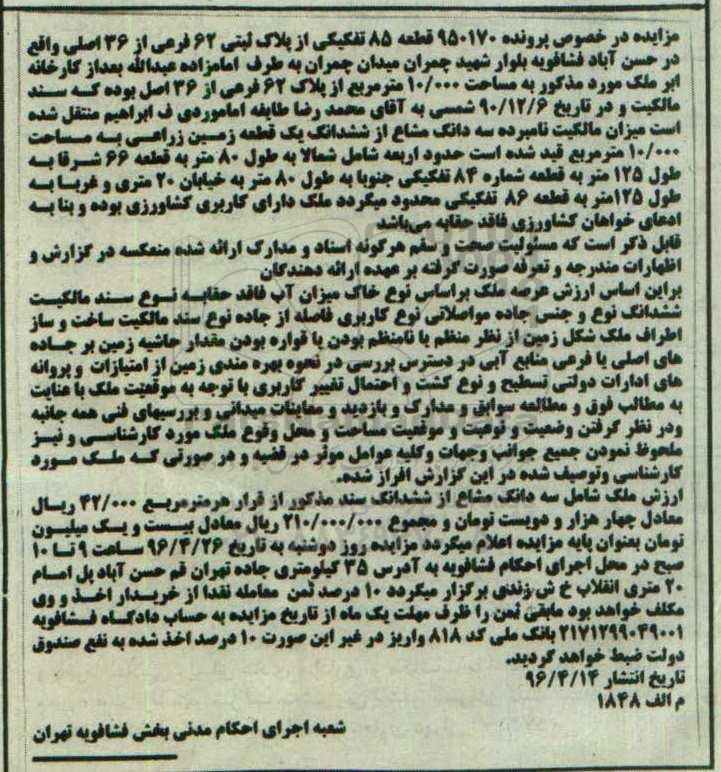 مزایده در خصوص پرونده ۹۵۰۱۷۰ قطعه ۸۵ تفکیکی از پلاک ثبتی ۶۲ فرعی از ۳۶ اصلی واقع
در حسن آباد فشافویه بلوار شهید چمران میدان چمران به طرف امامزاده عبدالله بعداز کارخانه
ابر ملک مورد مذکور به مساحت ۱۰/۰۰۰ مترمربع از پلاک ۶۲ فرعی از ۳۶ اصل بوده که سند
مالکیت و در تاریخ ۹۰/۱۲/۶ شمسی به آقای محمد رضا طایفه اماموردی ف ابراهیم منتقل شده
است میزان مالکیت نامبرده سه دانگ مشاع از ششدانگ یک قطعه زمین زراعی به مساحت
۱۰/۰۰۰ مترمربع قید شده است حدود اربعه شامل شمالا به طول ۸۰ متر به قطعه ۶۶ شرقا به
طول ۱۲۵ متر به قطعه شماره ۸۴ تفکیکی جنوبا به طول ۸۰ متر به خیابان ۲۰ متری و غربا به
طول ۱۲۵متر به قطعه ۸۶ تفکیکی محدود میگردد ملک دارای کاربری کشاورزی بوده و بنا به
ادعای خواهان کشاورزی فاقد حقابه می‌باشد
قابل ذکر است که مسئولیت صحت و سقم هرگونه اسناد و مدارک ارائه شده منعکسه در گزارش و
اظهارات مندرجه و تعرفه صورت گرفته بر عهده ارائه دهندگان
براین اساس ارزش عرصه ملک براساس نوع خاک میزان آب فاقد حقابه نوع سند مالکیت
ششدانگ نوع و جنس جاده مواصلاتی نوع کاربری فاصله از جاده نوع سند مالکیت ساخت و ساز
اطراف ملک شکل زمین از نظر منظم یا نامنظم بودن یا قواره بودن مقدار حاشیه زمین بر جاده
های اصلی یا فرعی منابع آبی در دسترس بررسی در نحوه بهره مندی زمین از امتیازات و پروانه
های ادارات دولتی تسطیح و نوع کشت و احتمال تغییر کاربری با توجه به موقعیت ملک با عنایت
به مطالب فوق و مطالعه سوابق و مدارک و بازدید و معاینات میدانی و بررسیهای فنی همه جانبه
ودر نظر گرفتن وضعیت و نوعیت و موقعیت مساحت و محل وقوع ملک مورد کارشناسی و نیز
ملحوظ نمودن جمیع جوانب وجهات وکلیه عوامل موثر در قضیه و در صورتی که ملک مورد
کارشناسی وتوصیف شده در این گزارش افراز شده.
ارزش ملک شامل سه دانگ مشاع از ششدانگ سند مذکور از قرار هرمترمربع ۴۲/۰۰۰ ریال
معادل چهار هزار و دویست تومان و مجموع ۲۱۰/۰۰۰/۰۰۰ ریال معادل بیست و یک میلیون
تومان بعنوان پایه مزایده اعلام میگردد مزایده روز دوشنبه به تاریخ ۹۶/۴/۲۶ ساعت ۹ تا ۱۰
صبح در محل اجرای احکام فشافویه به آدرس ۳۵ کیلومتری جاده تهران قم حسن آباد پل امام
۲۰ متری انقلاب خ ش زندی برگزار میگردد ۱۰ درصد ثمن معامله نقدا از خریدار اخذ و وی
مکلف خواهد بود مابقی ثمن را ظرف مهلت یک ماه از تاریخ مزایده به حساب دادگاه فشافویه
۲۱۷۱۲۹۹۰۴۹۰۰۱ بانک ملی کد ۸۱۸ واریز در غیر این صورت ۱۰ درصد اخذ شده به نفع صندوق
دولت ضبط خواهد گردید.
تاریخ انتشار ۹۶/۴/۱۴
م الف ۱۸۴۸
شعبه اجرای احکام مدنی بخش فشافویه تهران